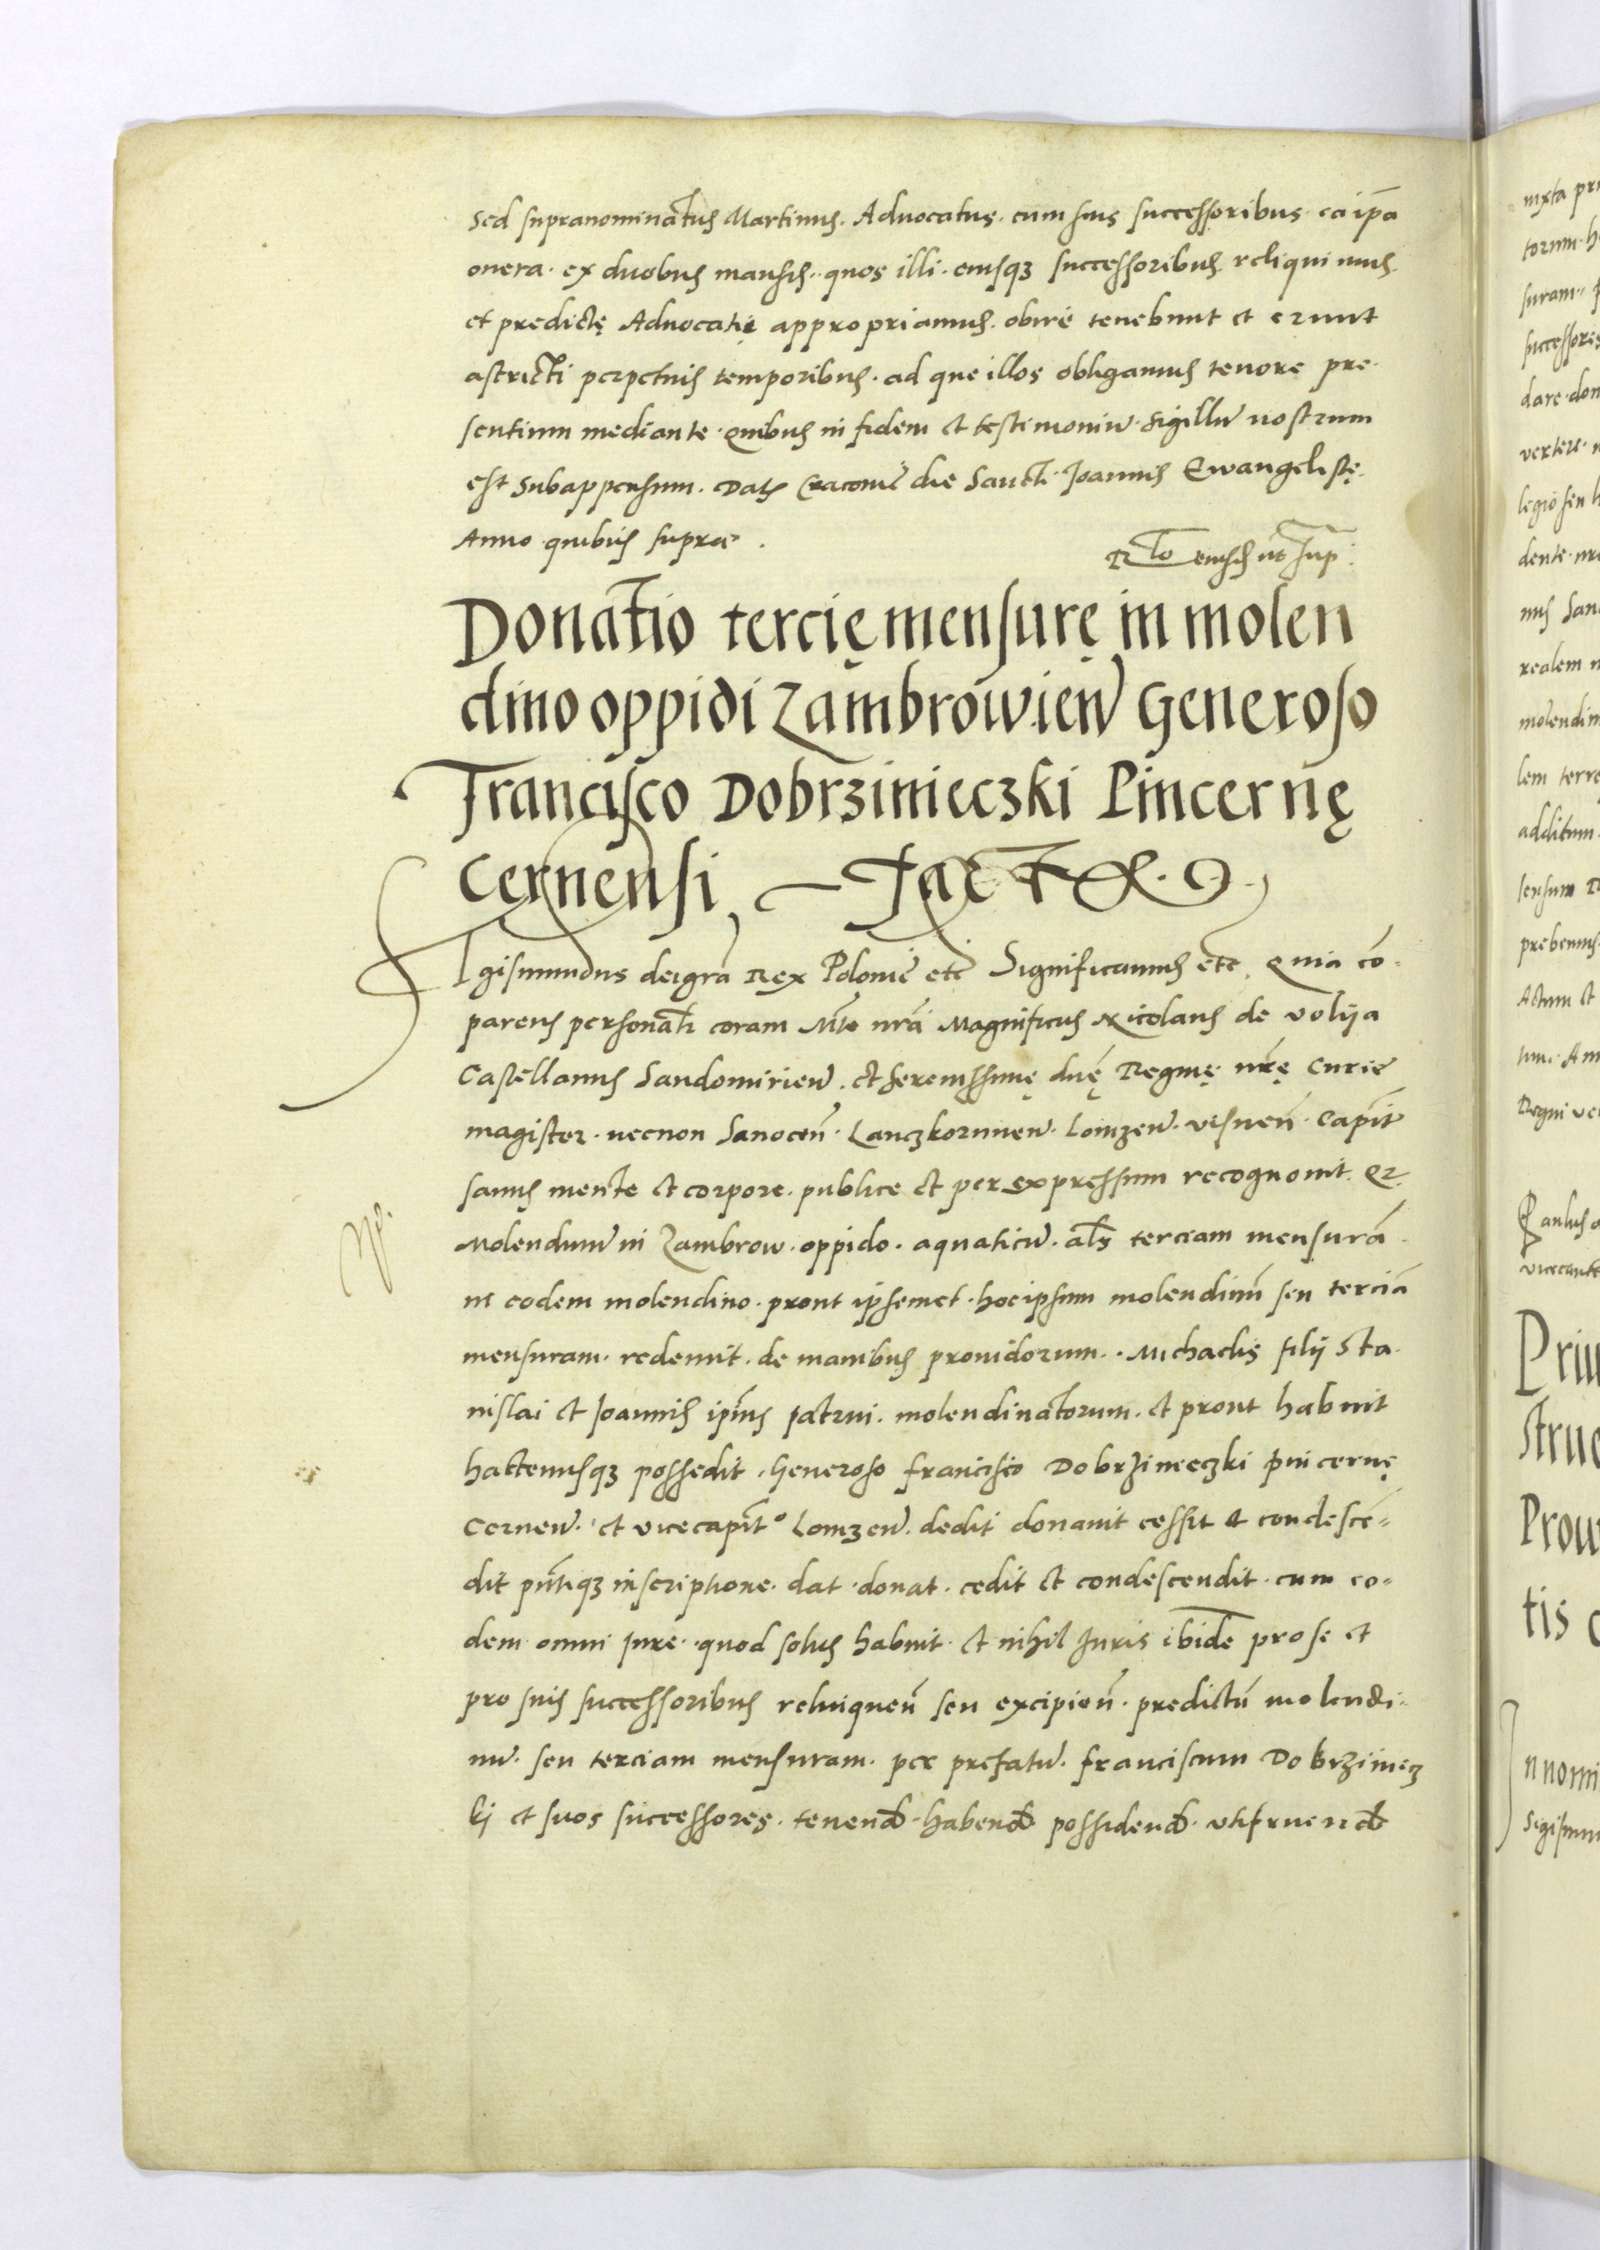 Sed supranominatus Martinus. Advocatus. cum suis successoribus. ea ip̄a
onera. ex duobus mansis. quos illi. eiusqȝ successoribus reliquimus.
et predictę Advocatię appropriamus. obire tenebunt et erunt
astricti perpetuis temporibus. ad que illos obligamus tenore pre-
sentium mediante. Quibus in fidem et testimoniū. Sigillū nostrum
est subappensum. Datꝭ Cracovie die Sancti. Joannis Ewangelistę.
Anno quibus supra.
R̄lo eiusdē ut sup:
Donatio tercię mensurę in molen
dino oppidi Zambrowien̄ Generoso
Francisco Dobrzinieczki Pincernę
Cernensi
Sigismundus dei gr̄a Rex Polonie etc̄ Significamus etc̄. Quia cō-
parens personał̄r coram Mte nr̄a Magnificus Nicolaus de Volija
Castellanus Sandomirien̄. et serenissimę dn̄ę Reginę nr̄ę Curie
magister. necnon Sanocen̄. Lanczkorunen̄. Lomzen̄. Visnen̄. Capit̄
sanus mente et corpore. publice et per expressum recognovit. Qꝛ
Molendinū in Zambrow. oppido. aquaticū. al̄s terciam mensurā.
in eodem molendino. prout ipsemet. hoc ipsum molendinū seu terciā
mensuram. redemit. de manibus providorum. Michaelis filij Sta-
nislai et Joannis ip̄ius patrui. molendinatorum. et prout habuit
hactenusqȝ possedit. Generoso Francisco Dobrzinieczki pincernę
Cernen̄. et vicecapit̄o Lomzen̄. dedit donavit cessit et condescē-
dit pn̄tiqȝ inscriptione. dat. donat. cedit et condescendit. cum eo-
dem omni jure. quod solus habuit. et nihil Juris ibidē pro se et
pro suis successoribus relinquen̄ seu excipien̄. predictū molendi-
nū. seu terciam mensuram. per prefatū. Franciscum Dobrzinięcz
kj et suos successores. tenend̄. habend̄ possidend̄. utifruend̄